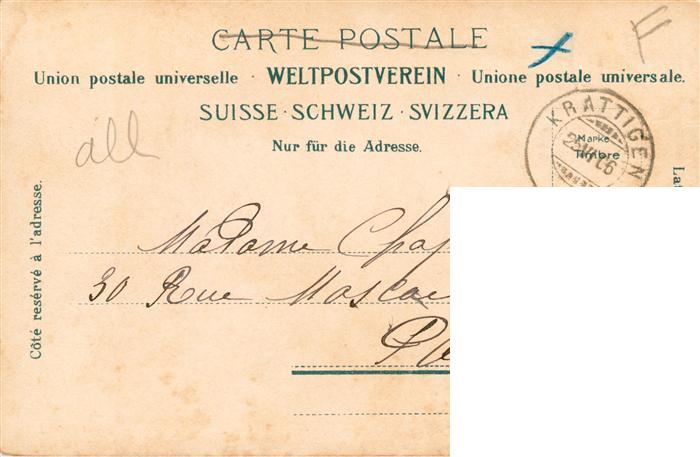 CARTE POSTALE
Union postale universelle · WELTPOSTVEREIN · Unione postale universale.
SUISSE · SCHWEIZ · SVIZZERA
Nur für die Adresse.
KRATTIGEN
Marke
Timbre
all
F
Côté resérvé à l'adresse.
Madame
30 Rue